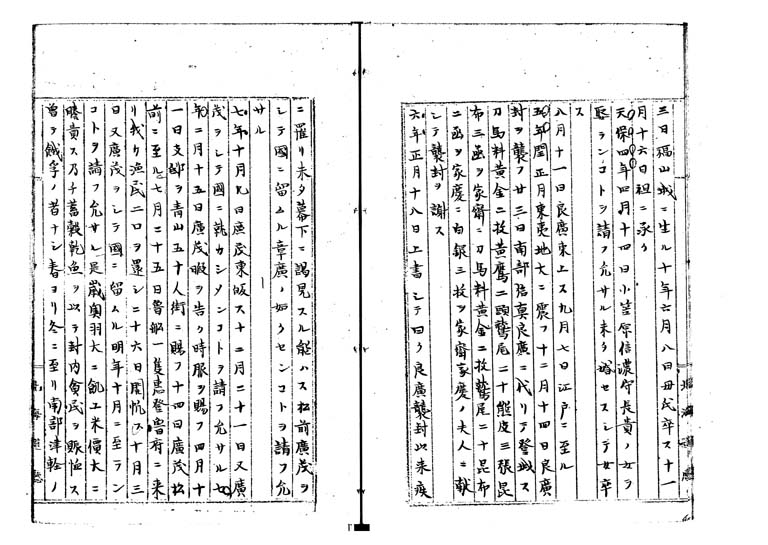 三日福山城ニ生ル十年六月八日毋氏卒ス十一
月十六日祖ニ承ク
天保四年四月十四日小笠原信濃守長貴ノ女ヲ
娶ランコトヲ請フ允サル未タ婚セスシテ女卒
ス
八月十一日良廣東上ス九月七日江戸ニ至ル
五年閏正月東夷地大ニ震フ十二月十四日良廣
封ヲ襲フ廿三日南部信真良廣ニ代リテ登城ス
刀馬料黄金二枚黄鷹二頭鷲尾二十熊皮三張昆
布三函ヲ家齊ニ刀馬料黄金二枚鷲尾二十昆布
二函ヲ家慶ニ白銀三枚ヲ家齊家慶ノ夫人ニ献
シテ襲封ヲ謝ス
六年正月十八日上書シテ曰ク良廣襲封以来疾
ニ罹リ未タ幕下ニ謁見スル能ハス松前廣茂ヲ
シテ國ニ留ムル章廣ノ如クセンコトヲ請フ允
サル
七年十月九日廣茂東啟ス十二月二十一日又廣
茂ヲシテ國ニ執カシメンコトヲ請フ允サル七
年二月十五日廣茂暇ヲ告ク時服ヲ賜フ四月十
一日支邸ヲ青山五十人街ニ賜フ十四日廣茂松
前ニ至ル七月二十五日魯船一隻恵登魯府ニ来
リ我カ漁民二口ヲ還シ二十六日開帆ス十月三
日又廣茂ヲシテ國ニ留ムル明年十月ニ至ラン
コトヲ請フ允サル是歳奥羽大ニ飢エ米價大ニ
騰貴ス乃チ蓄穀乾魚ヲ以テ封内貧民ヲ賑恤ス
曽テ餓莩ノ者ナシ春ヨリ冬ニ至リ南部津軽ノ